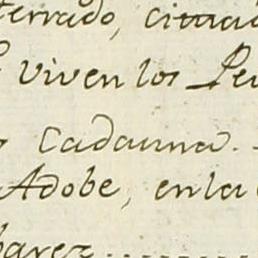 terrado, citua
viven los Pe
Cadauna.
Adobe, en la
barez